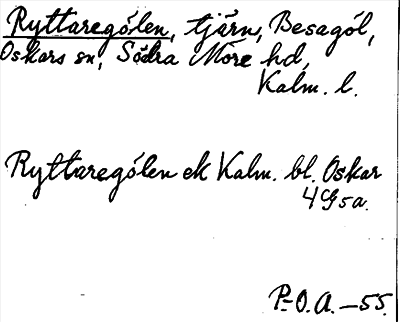 Ryttaregölen, tjärn, Besagöl,
Oskars sn, Södra Möre hd,
Kalm. l.
Ryttaregölen ek Kalm. bl. Oskar
4G5a.
P-O.A.–55.